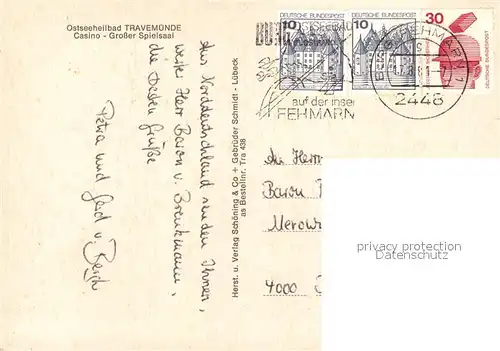 Ostseeheilbad TRAVEMÜNDE
Casino - Großer Spielsaal
Aus Norddeutschland senden Ihnen,
werter Herr Baron v.
die besten Grüße
Petra und Gerd v.
Herst. u. Verlag Schöning & Co + Gebrüder Schmidt - Lübeck
as Bestellnr. Tra 438
10
DEUTSCHE BUNDESPOST
10
DEUTSCHE BUNDESPOST
30
DEUTSCHE BUNDESPOST
OSTSEEBAD
BURG
auf der Insel
FEHMARN
BURG, FEHMARN 1
2448
An Herrn
Baron
4000
privacy protection
Datenschutz